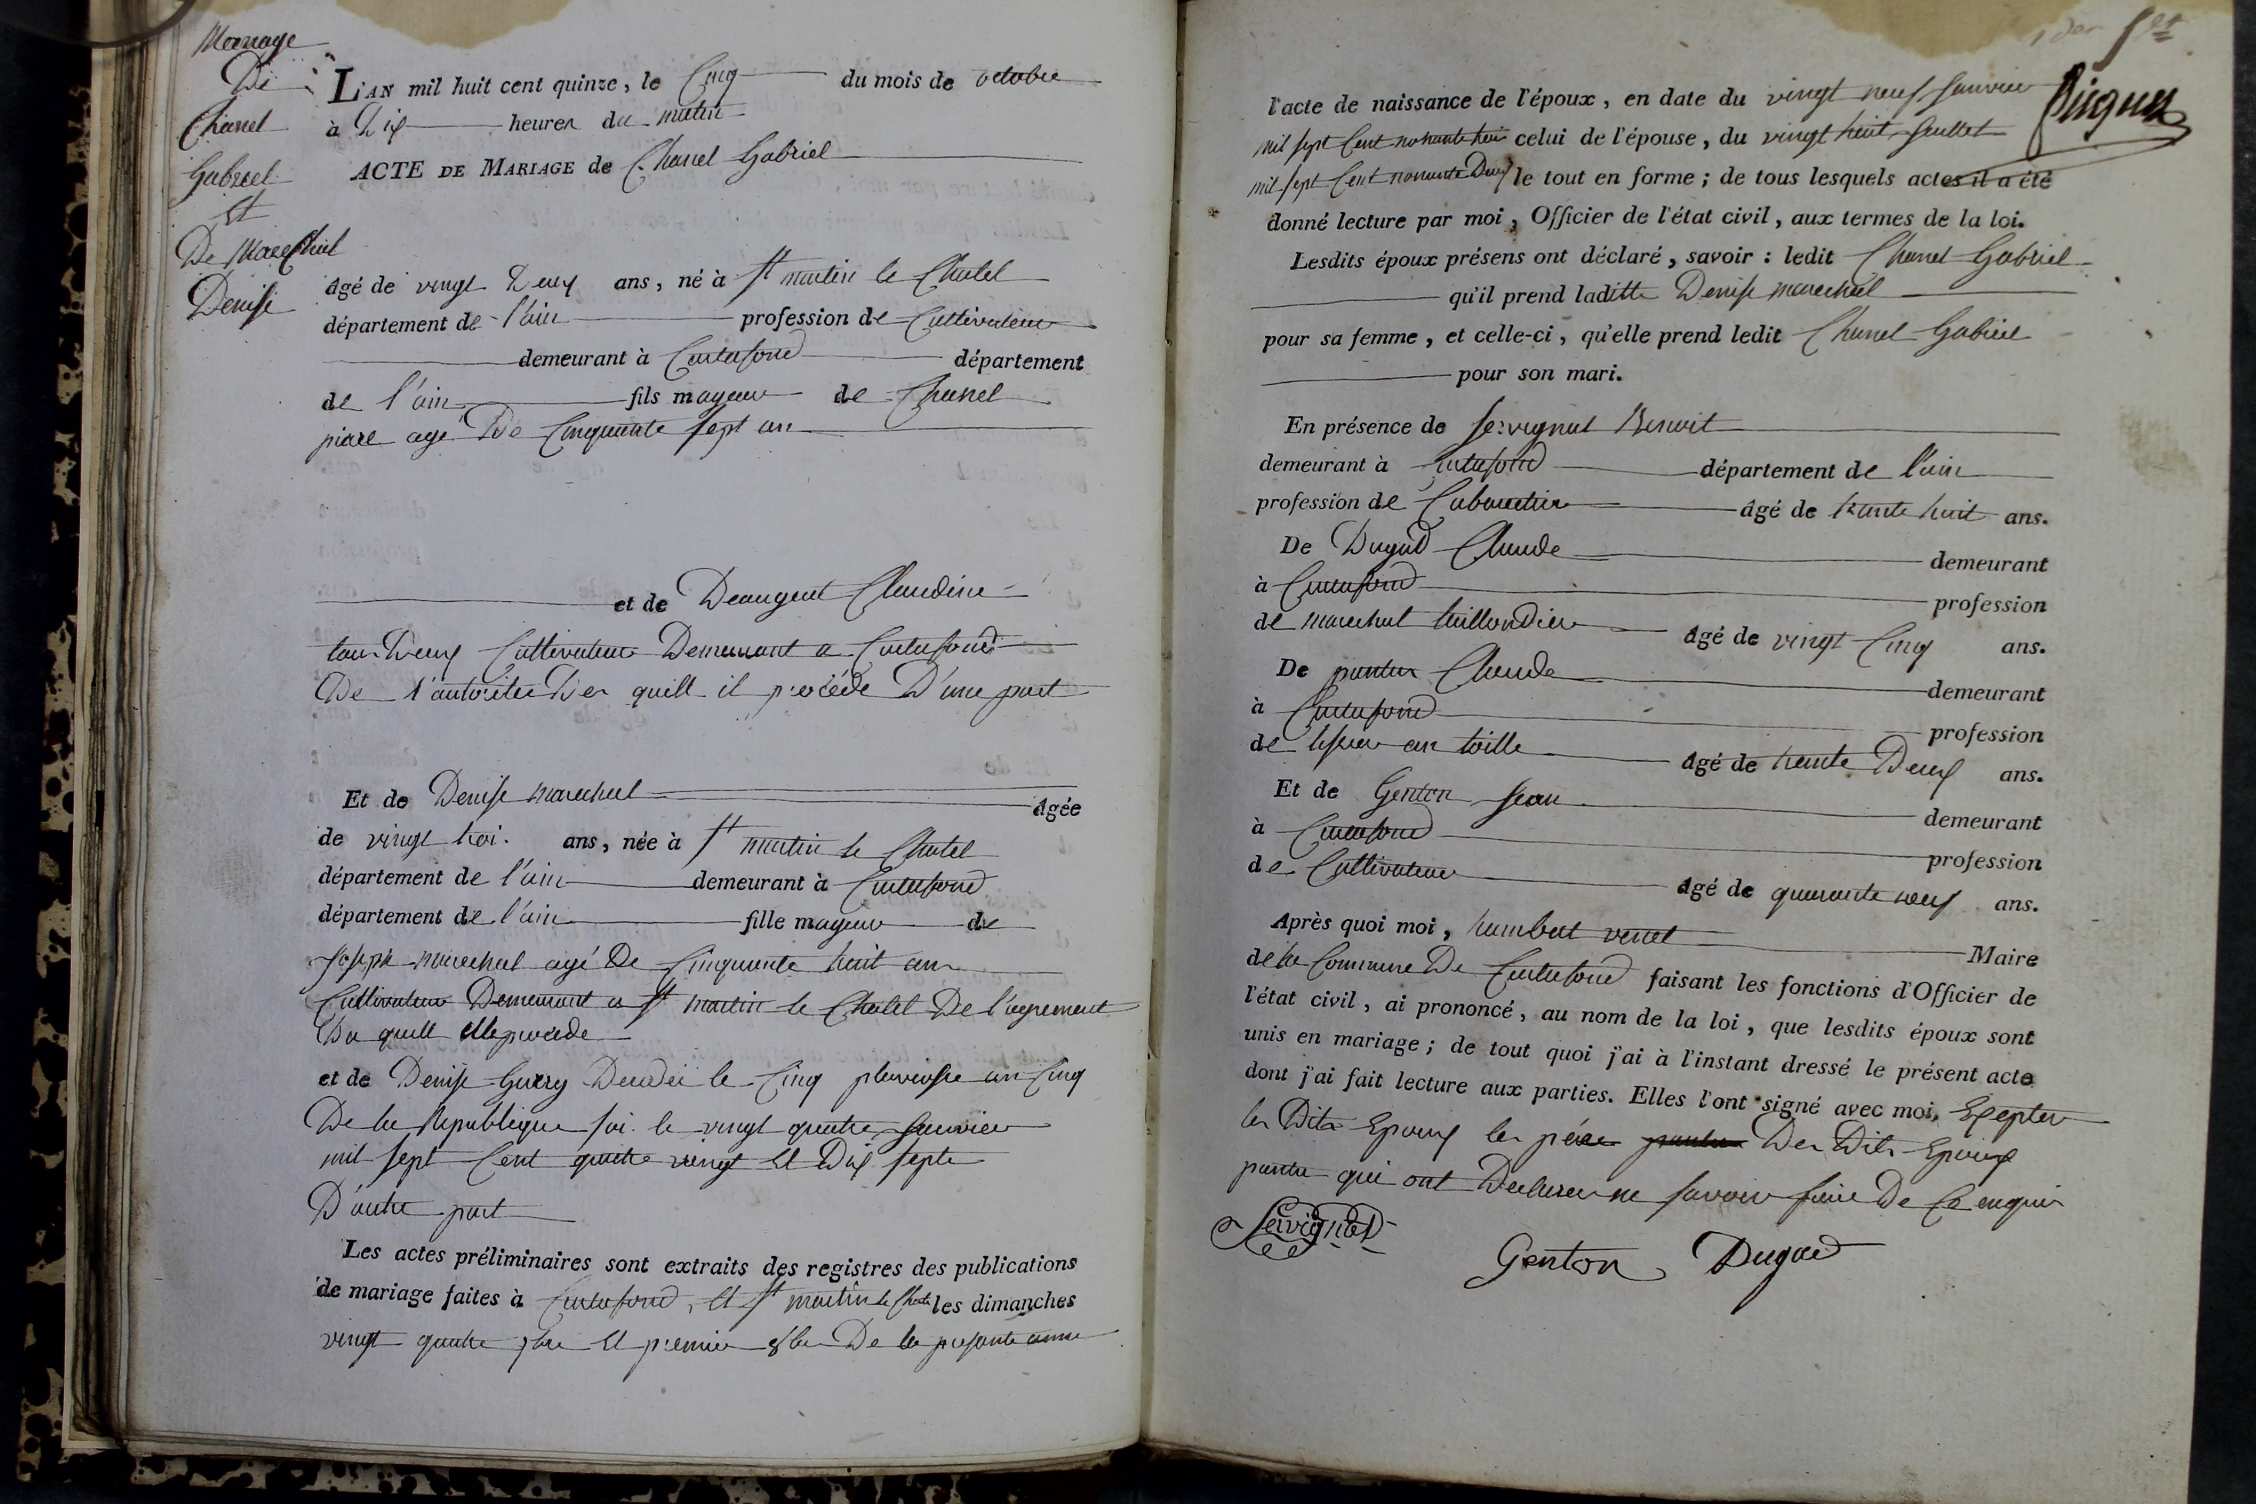 Mariage
De
Chanel
Gabriel
Et
De Marechal
Denise
L'AN mil huit cent quinze, le Cinq du mois de octobre
à Dix heures du matin
ACTE DE MARIAGE de Chanel Gabriel
âgé de vingt Deux ans, né à St martin le Chatel
département de l'ain profession de Cultivateur
demeurant à Curtafond département
de l'ain fils mageur de Chanel
piere agé De Cinquante sept an
et de Deaugeut Claudine
tous Deux Cultivateur Demeurant a Curtafond
De l'autorité Des quell il procéde D'une part
Et de Denise marechal âgée
de vingt troi ans, née à St martin le Chatel
département de l'ain demeurant à Curtafond
département de l'ain fille mageur de
Joseph marechal agé De Cinquante huit an
Cultivateur Demeurant a St martin le Chatel De l'agrement
Du quell elle procede
et de Denise Guery Decedé le Cinq pluviose an Cinq
De la Republique soi le vingt quatre Janvier
mil sept Cent quatre vingt et Dix septe
D'autre part
Les actes préliminaires sont extraits des registres des publications
de mariage faites à Curtafond, et St martin le Chatel les dimanches
vingt quatre 7bre et premier 8bre De la presente anné
1 der Set
l'acte de naissance de l'époux, en date du vingt neuf Janvier
mil sept Cent nonante troi celui de l'épouse, du vingt huit Juillet
mil sept Cent nonante Deux le tout en forme ; de tous lesquels actes il a été
donné lecture par moi, Officier de l'état civil, aux termes de la loi.
Lesdits époux présens ont déclaré, savoir : ledit Chanel Gabriel
qu'il prend laditte Denise marechal
pour sa femme, et celle-ci, qu'elle prend ledit Chanel Gabriel
pour son mari.
En présence de Servignat Benoit
demeurant à Curtafond département de l'ain
profession de Cabaretier âgé de trante huit ans.
De Dugad Claude demeurant
à Curtafond profession
de marechal taillandier âgé de vingt Cinq ans.
De Claude demeurant
à Curtafond profession
de tiseur an toille âgé de trente Deux ans.
Et de Genton Jean demeurant
à Curtafond profession
de Cultivateur âgé de quarante neuf ans.
Après quoi moi, humbert venet Maire
de la Commune De Curtafond faisant les fonctions d'Officier de
l'état civil, ai prononcé, au nom de la loi, que lesdits époux sont
unis en mariage ; de tout quoi j'ai à l'instant dressé le présent acte
dont j'ai fait lecture aux parties. Elles l'ont signé avec moi, Excepter
les Dits Epoux les pére Des Dits Epoux
qui ont Declarer ne savoir faire De Ce enquis
Servignat
Genton Dugad